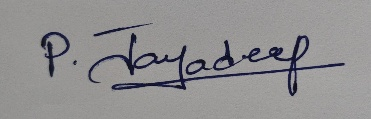 P. Jayadeep